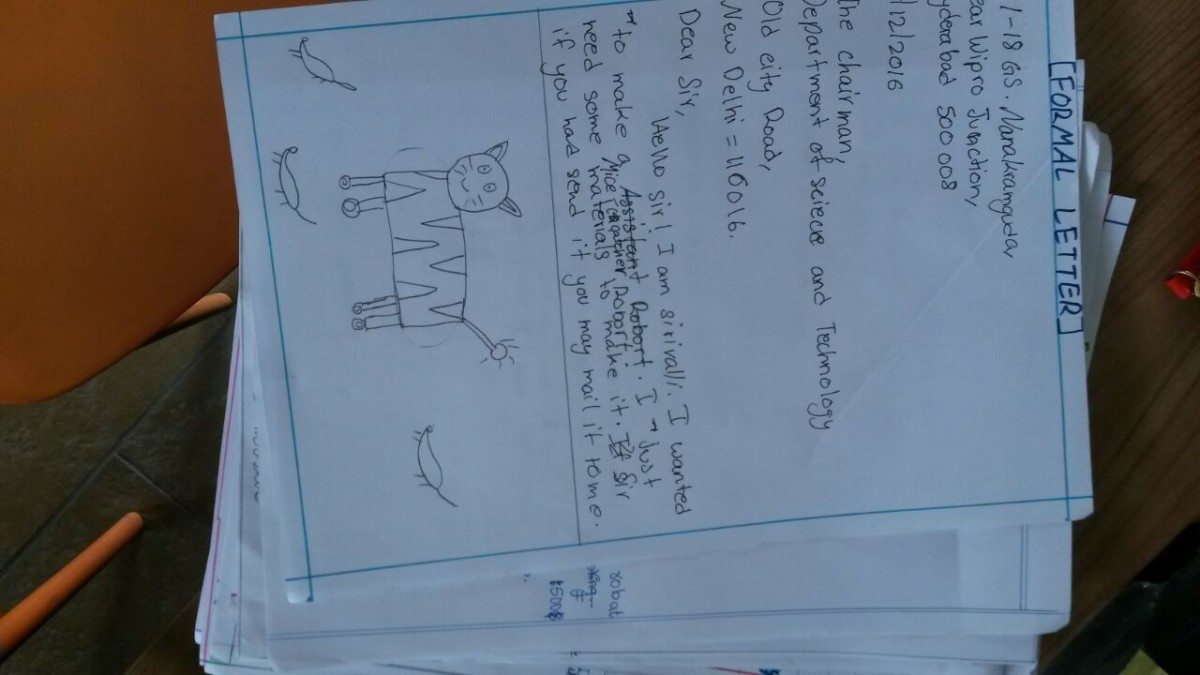 [FORMAL LETTER]
1-18 GS. Nanakramguda,
ear Wipro Junction,
yderabad 500 008
/12/2016
The chairman,
Department of sciece and Technology
Old city Road,
New Delhi = 110016.
Dear Sir,
Hello sir! I am sirivalli. I wanted
to make a Assistant Robort. I Just
Mice catcher Robort.
need some materials to make it. If Sir
if you had send it you may mail it to me.
robot
$500